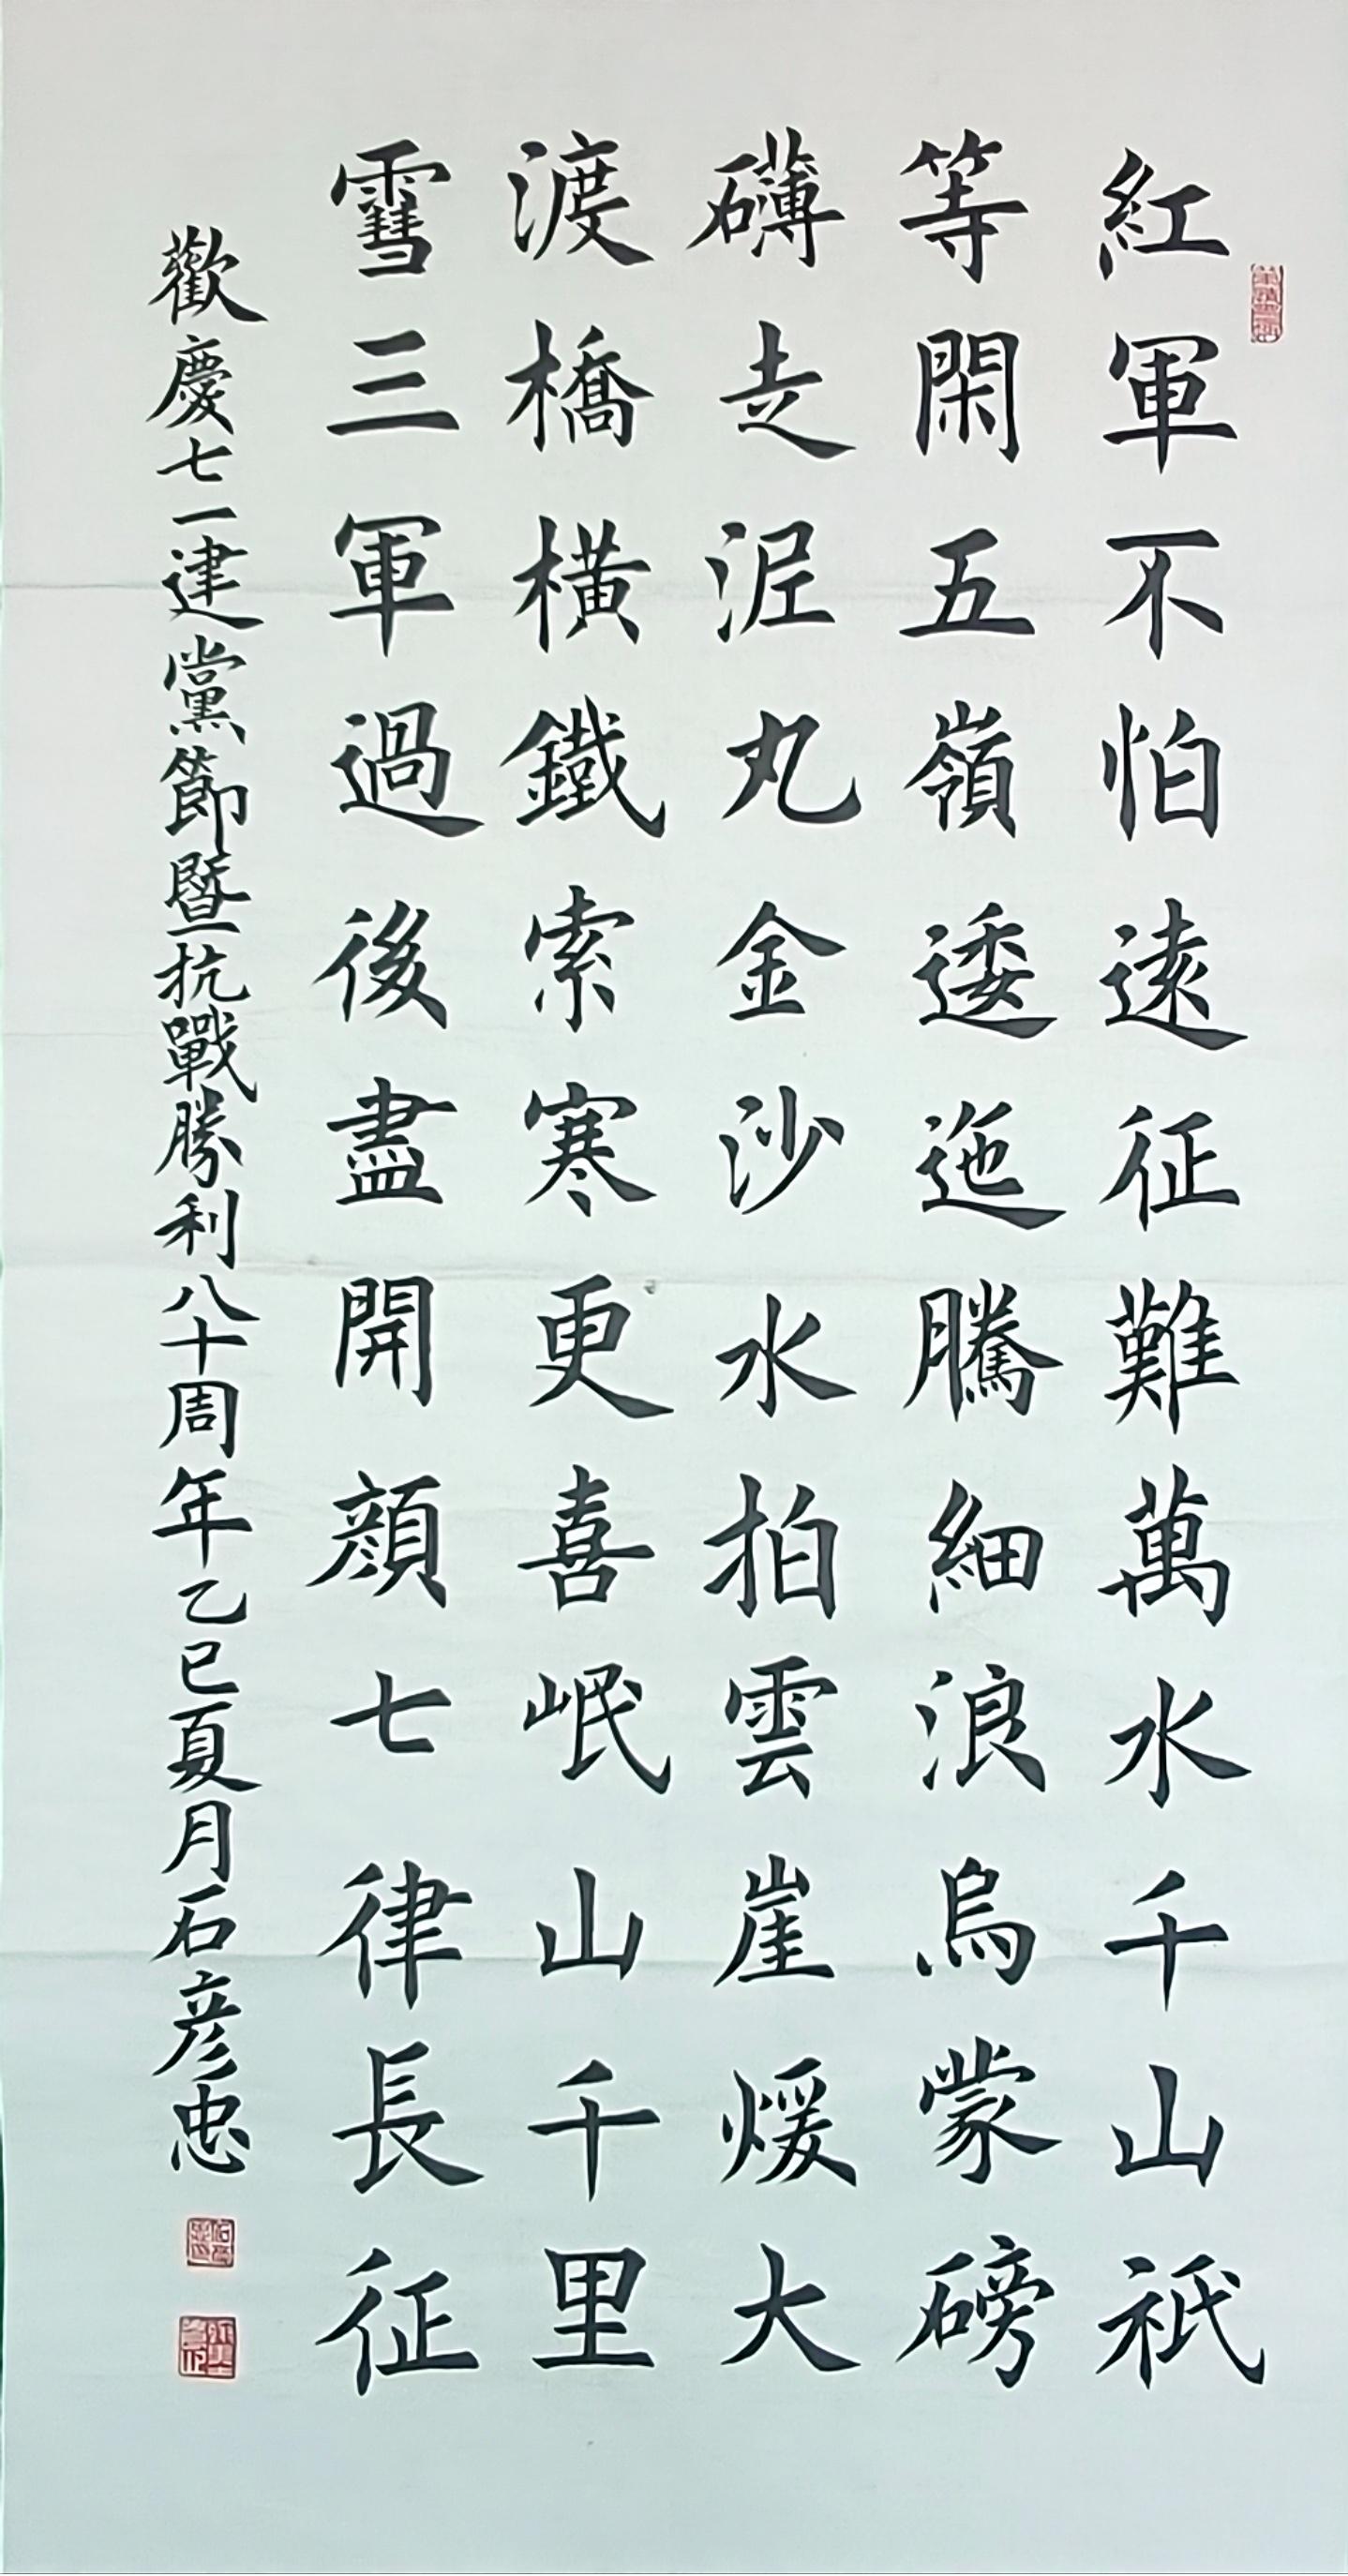 紅軍不怕遠征難萬水千山祇
等閑五嶺逶迤騰細浪烏蒙磅
礴走泥丸金沙水拍雲崖煖大
渡橋橫鐵索寒更喜岷山千里
雪三軍過後盡開顏七律長征
歡慶七一建黨節暨抗戰勝利八十周年乙巳夏月石彥忠